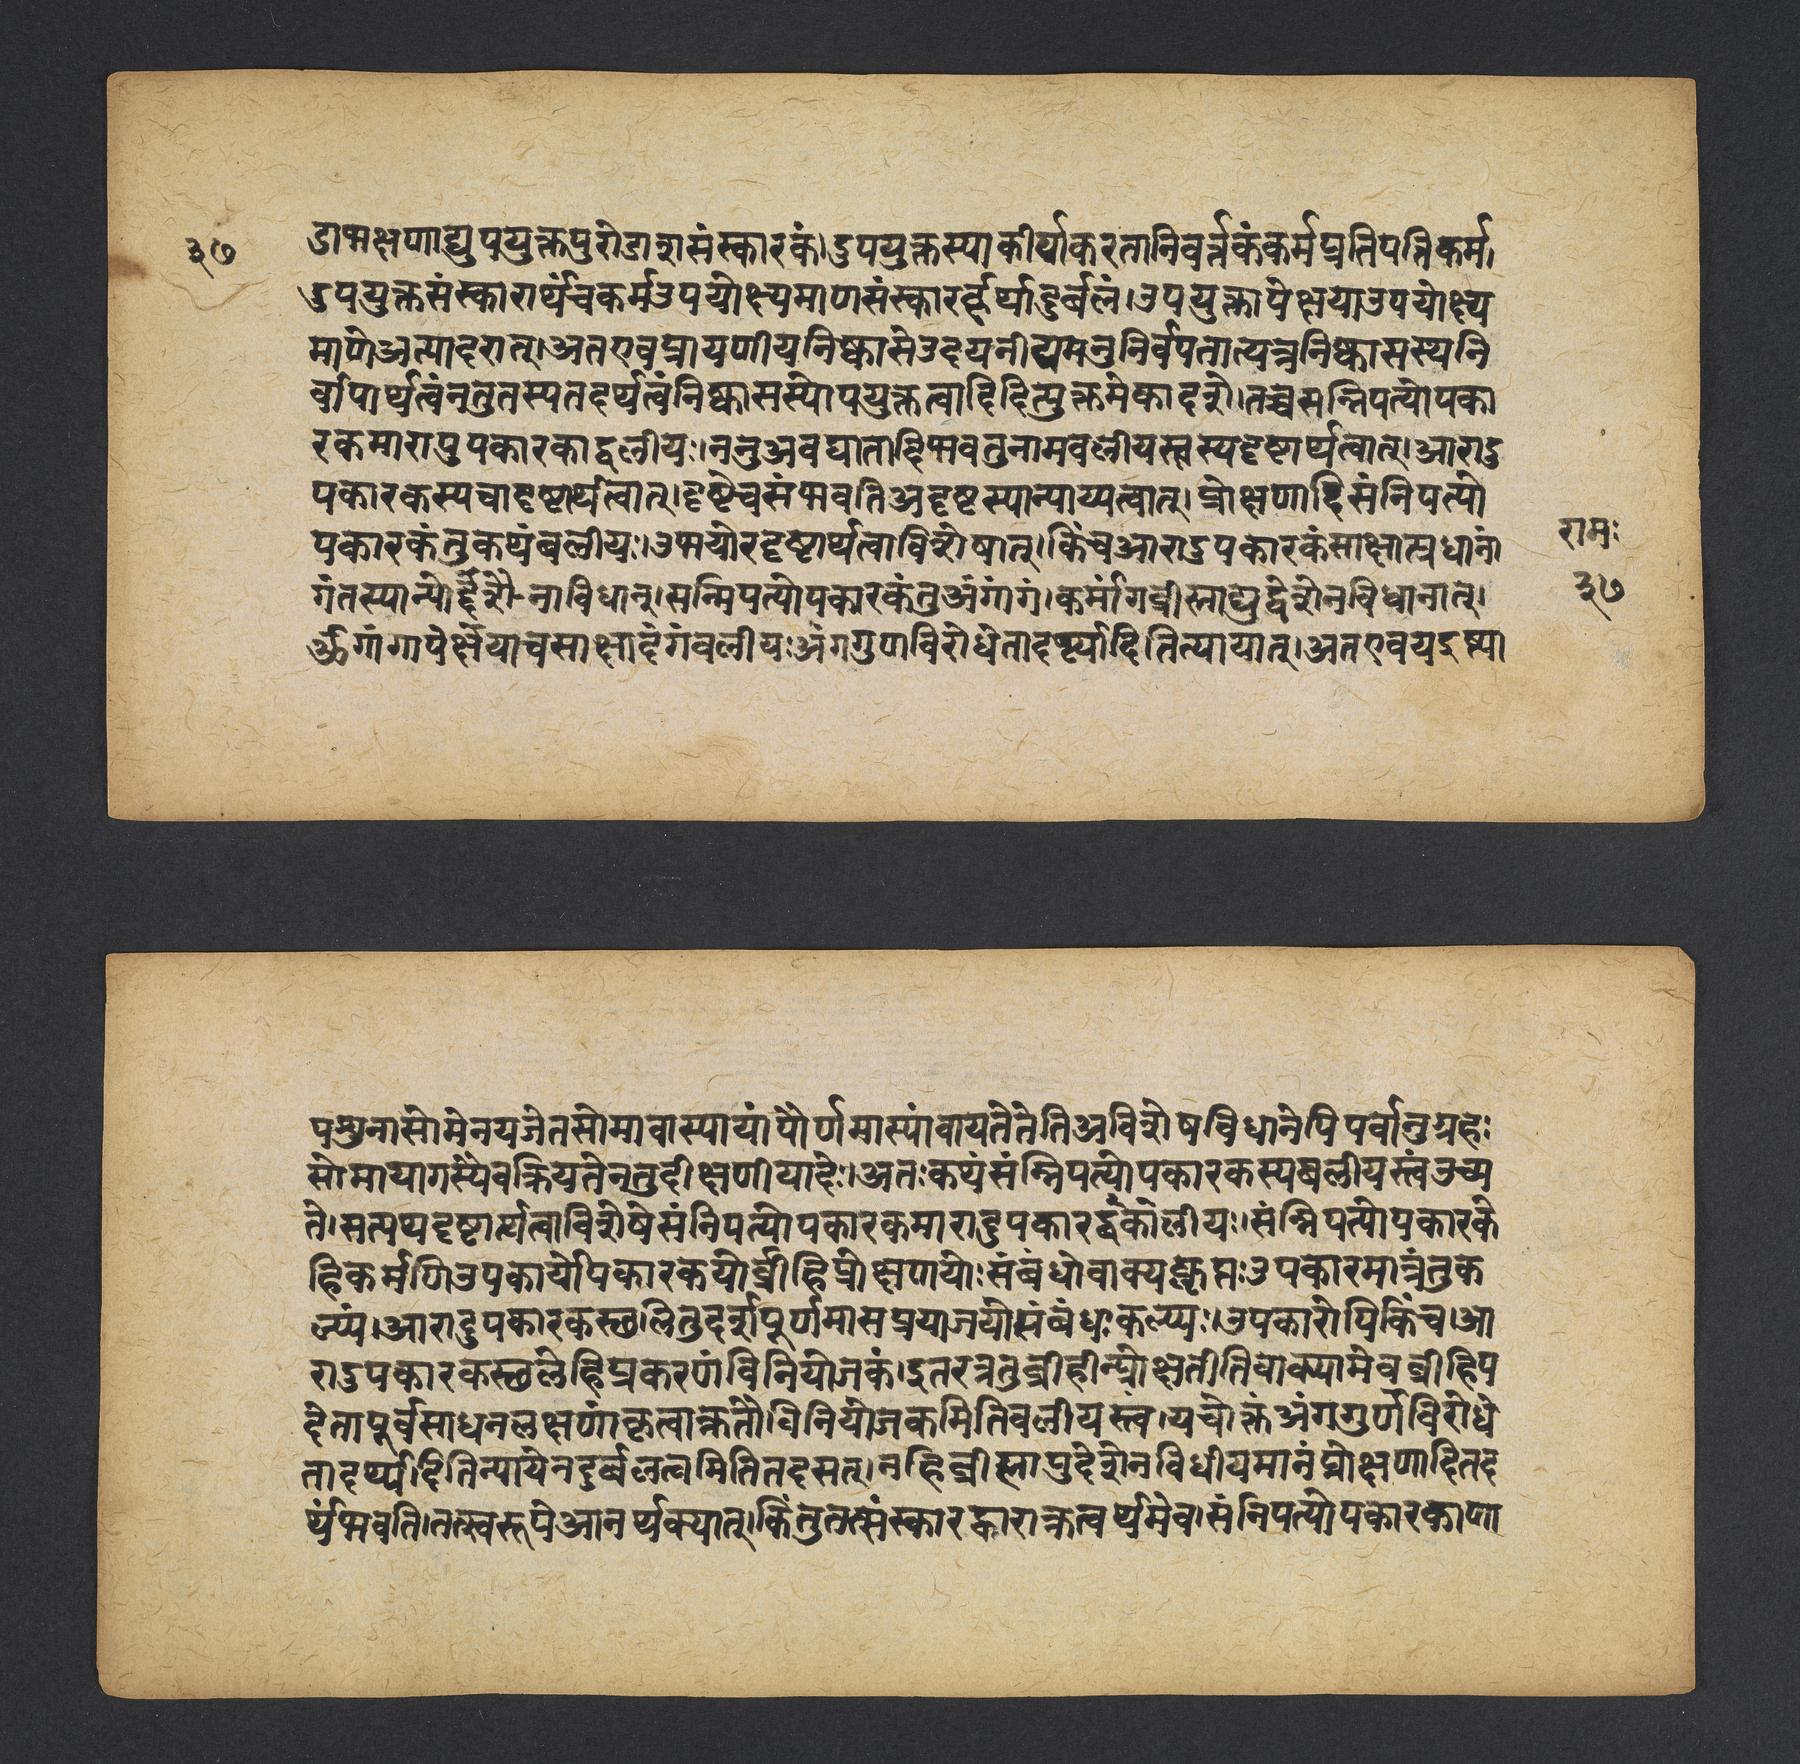 ३७
डाभक्षणाद्युपयुक्तपुरोडाशसंस्कारकं।उपयुक्तस्याकीर्याकरतानिवर्त्तकंकर्मप्रतिपत्तिकर्म।
उपयुक्तसंस्कारार्थंचकर्मउपयोक्ष्यमाणसंस्कारर्थाद्दुर्बलं।उपयुक्तापेक्षयाउपयोक्ष्य
माणेअत्यादरात्।अतएवप्रायणीयनिष्कासेउदयनीयमनुनिर्वपतात्यत्रनिष्कासस्यनि
र्वापार्थत्वंनतुतस्यतदर्थत्वंनिष्कासस्योपयुक्तत्वादिदित्युक्तमेकादशे।तच्चसन्निपत्योपका
रकमारादुपकारकाद्बलीयः।ननुअवघातादिभवतुनामबलीयस्त्वस्यदृष्टार्थत्वात्।आरादु
पकारकस्यचादृष्टार्थत्वात्।दृष्टेचसंभवतिअदृष्टस्यान्याय्यत्वात्।प्रोक्षणादिसंनिपत्यो
पकारकंतुकथंबलीयः।उभयोरदृष्टार्थत्वाविशेषात्।किंचआरादुपकारकंसाक्षात्प्रधानां
रामः
गंतस्यान्योद्देशेनाविधान्।सन्निपत्योपकारकंतुअंगांगं।कर्मांगव्रीह्याद्युद्देशेनविधानात्।
३७
अंगांगापेक्षयाचसाक्षादंगंबलीयःअंगगुणविरोधेतादर्थ्यादितित्यायात्।अतएवयइष्ट्या
पशुनासोमेनयजेतसोमावास्यायांपौर्णमास्यांवायतेतेतिअविशेषविधानेपिपर्वानुग्रहः
सोमायागस्यैवक्रियतेन्तुदीक्षणीयादेः।अतःकथंसंन्निपत्योपकारकस्यबलीयस्त्वंउच्य
ते।सत्यप्यदृष्टार्त्थत्वाविशेषेसंनिपत्योपकारकमारादुपकारद्बंकोलीयः।संन्निपत्योपकारके
हिकर्मणिउपकार्योपकारकयोर्व्रीहिप्रोक्षणयोःसंबंधोवाक्यकॢप्तःउपकारमात्रंतुक
ल्प्यं।आरादुपकारकस्छलितुदर्शपूर्णमासप्रयाजयोसंबंधःकल्प्यः।उपकारोपिकिंच।आ
रादुपकारकस्छलेहिप्रकरणंविनियोजकं।इतरत्रतुव्रीहीन्प्रोक्षतीतिवाक्यामेवव्रीहिप
देतापूर्वसाधनलक्षणांकृत्वाक्रतौविनियोजकमितिबलीयस्त्वं।यचोक्तंअंगगुणेविरोधे
तादर्थ्यादितिन्यायेनदुर्बलत्वमितितदसत्।नहिव्रीह्यापुदेशेनविधीयमानंप्रोक्षणादितद
र्थंभवति।तत्स्वरूपेआनर्थक्यात्।किंतुतत्संस्कारद्वाराक्रत्वर्थमेव।संनिपत्योपकारकाणा